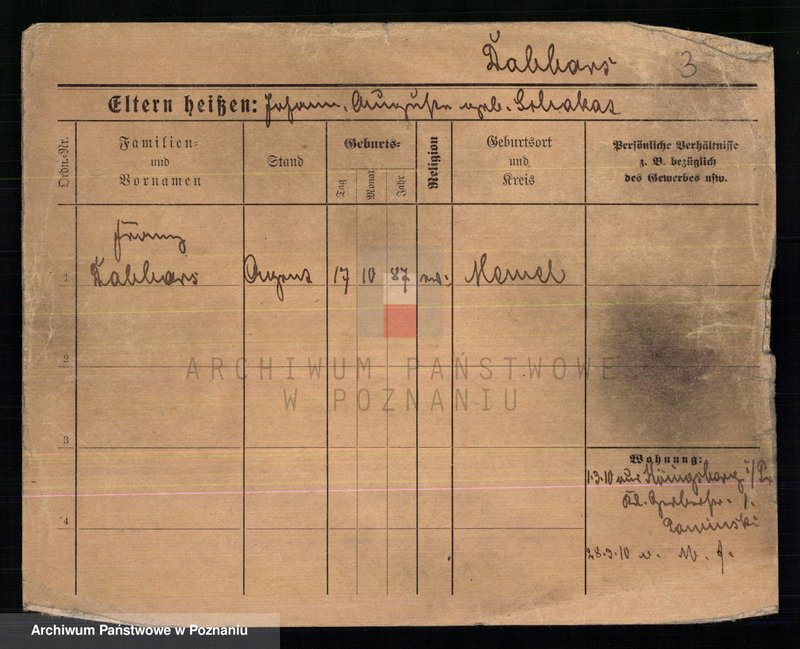 Dabbars 3
Eltern heißen: Johann, Auguste geb.
Ordn.-Nr.
Familien- und Vornamen
Stand
Geburts-
Tag
Monat
Jahr
Religion
Geburtsort und Kreis
Persönliche Verhältnisse
z. B. bezüglich
des Gewerbes usw.
1
Franz
Dabbars
Agent
17
10
87
ev.
Memel
ARCHIWUM PAŃSTWOWE
W POZNANIU
2
3
4
Wohnung:
1.3.10 aus Königsberg i/Pr
Kl. Gerberstr.
28.3.10 n.
Archiwum Państwowe w Poznaniu